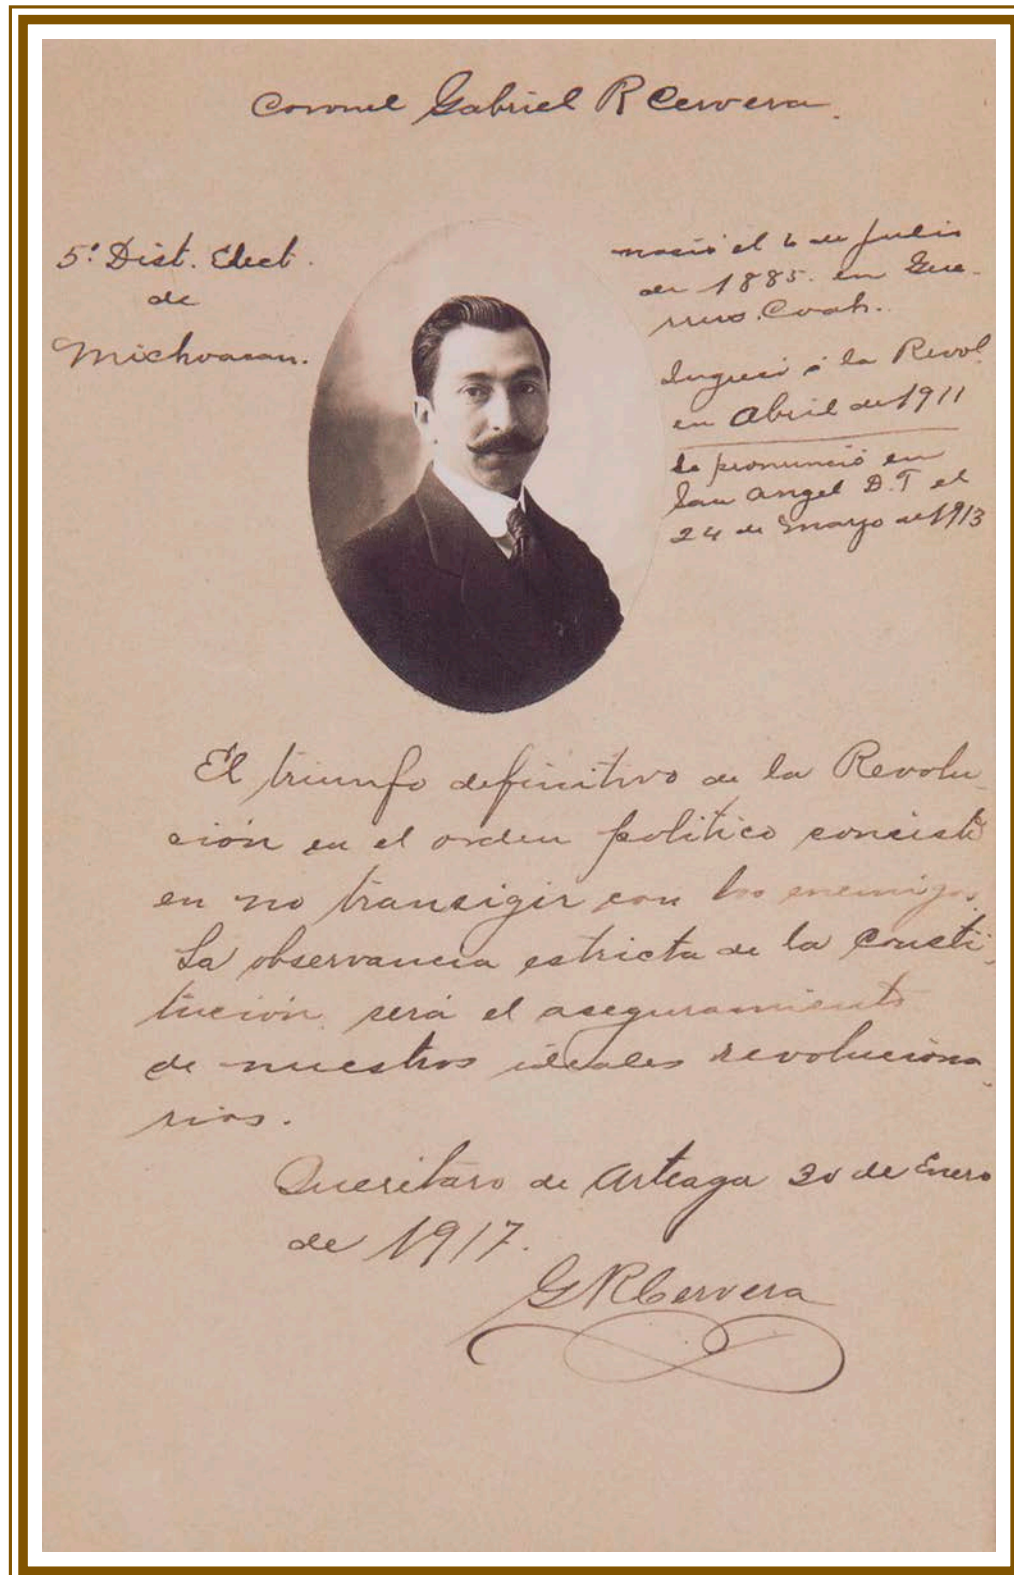 Coronel Gabriel R Cervera.
5º Dist. Elect.
de
Michoacan.
nació el 6 de Julio
de 1885. en Gue-
rrero. Coah.
Ingresó á la Revol.
en Abril de 1911
Se pronunció en
San Angel D.F el
24 de Mayo de 1913
El triunfo definitivo de la Revolu-
ción en el orden politico consiste
en no transigir con los enemigos.
La observancia estricta de la Consti-
tución, será el aseguramiento
de nuestros ideales revoluciona-
rios.
Querétaro de Arteaga 30 de Enero
de 1917.
G R Cervera